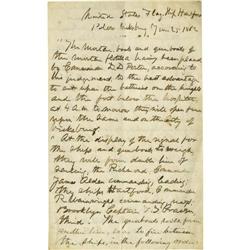 United States Flag Ship Hartford
Below Vicksburg June 25 1862
"The Mortar boats and gunboats of
the mortar flotilla having been placed
by Commander D. D. Porter, according
to his judgment to the best advantage
to act upon the batteries on the heights
and the fort below the hospital
at 4 a.m. to morrow they will open fire
upon the same and on the city of
Vicksburg"
At the display of the signal for
the ships and gunboats to weigh
they will form double line of
sailing, the Richmond, Comman
James Alden commanding, leading;
the ships Hartford, Commander
R. Wainwright commanding, next
Brooklyn Captain T. T. Craven
third. The gunboats will form
another line, so as to fire between
the ships, in the following order